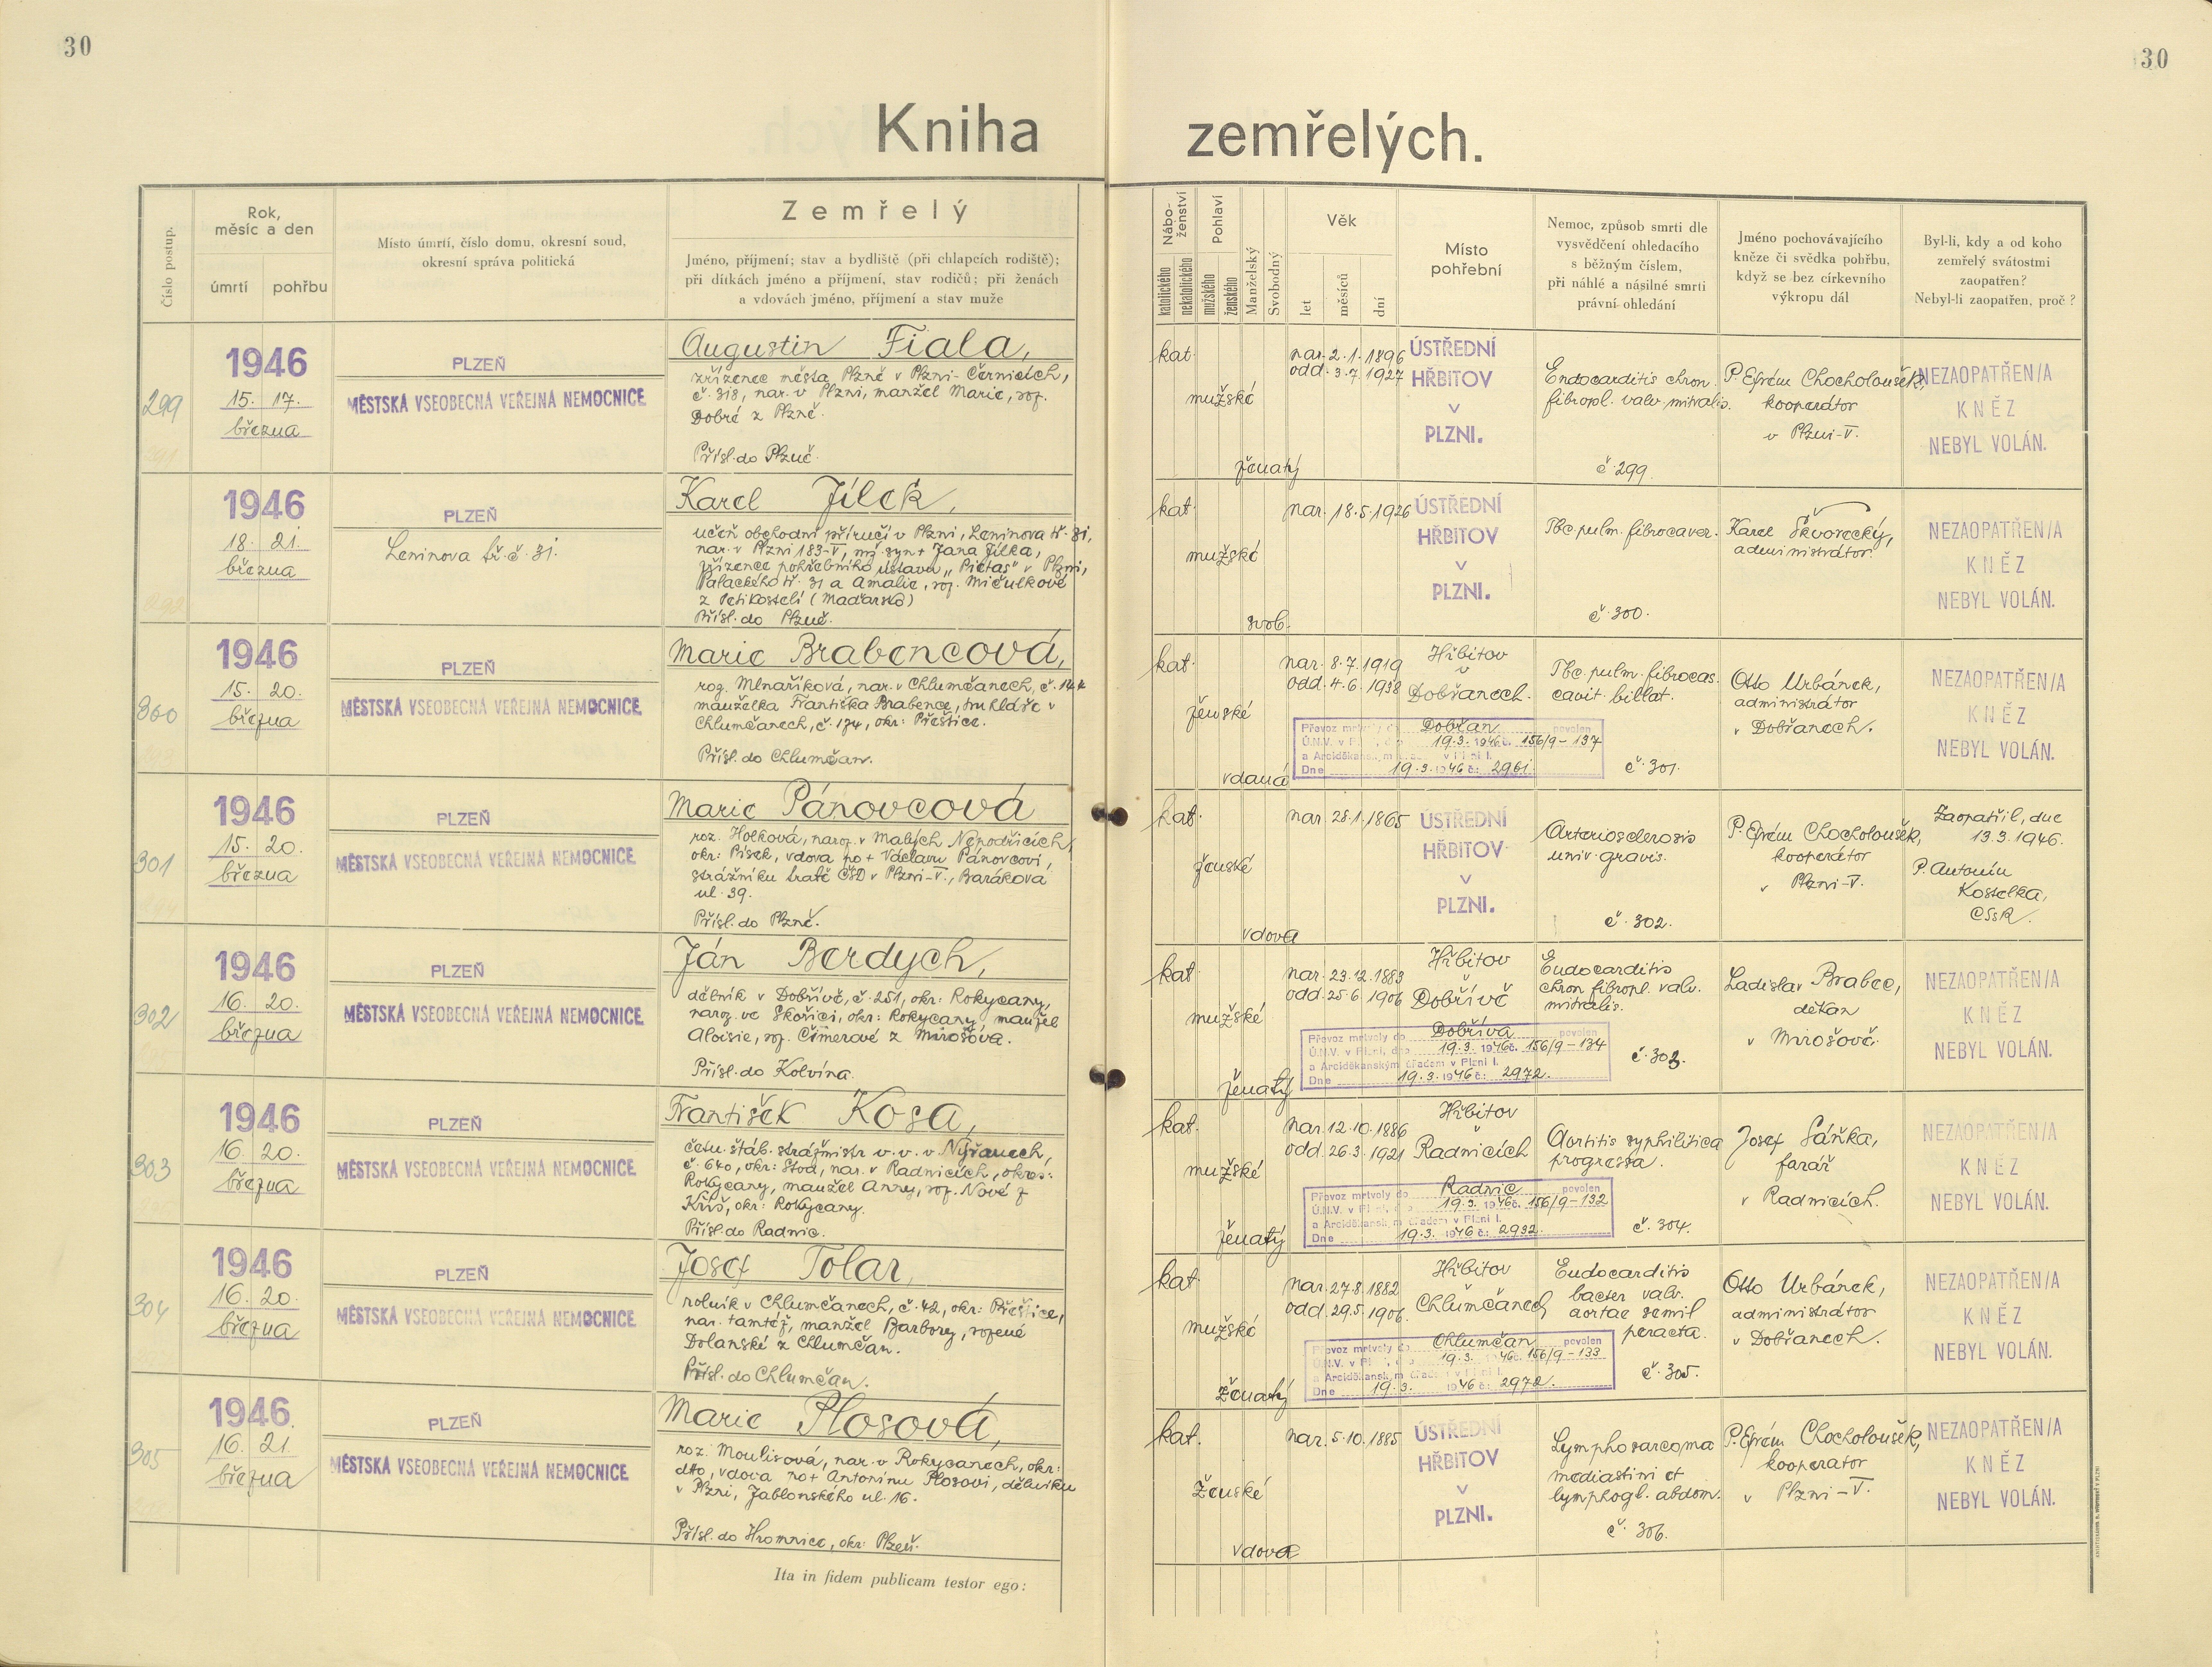 30
30
Kniha zemřelých.
Číslo postup.
Rok,
měsíc a den
úmrtí
pohřbu
Místo úmrtí, číslo domu, okresní soud,
okresní správa politická
Zemřelý
Jméno, příjmení; stav a bydliště (při chlapcích rodiště);
při dítkách jméno a příjmení, stav rodičů; při ženách
a vdovách jméno, příjmení a stav muže
Nábo-
ženství
katolického
nekatolického
Pohlaví
mužského
ženského
Manželský
Svobodný
Věk
let
měsíců
dní
Místo
pohřební
Nemoc, způsob smrti dle
vysvědčení ohledacího
s běžným číslem,
při náhlé a násilné smrti
právní ohledání
Jméno pochovávajícího
kněze či svědka pohřbu,
když se bez církevního
výkropu dál
Byl-li, kdy a od koho
zemřelý svátostmi
zaopatřen?
Nebyl-li zaopatřen, proč?
299
1946
15. 17.
března
PLZEŇ
MĚSTSKÁ VSEOBECNÁ VEŘEJNÁ NEMOCNICE
Augustin Fiala,
zřízenec města Plzně v Plzni-Černicích,
č. 318, nar. v Plzni, manžel Marie, roz.
Dobré z Plzně.
Přísl. do Plzně.
kat.
mužské
ženatý
nar. 2.1.1896
odd. 3.7.1927
ÚSTŘEDNÍ
HŘBITOV
V
PLZNI.
Endocarditis chron.
fibropl. valv. mitralis.
č. 299
P. Efrém Chocholoušek,
kooperátor
v Plzni-V.
NEZAOPATŘEN/A
KNĚZ
NEBYL VOLÁN.
1946
18. 21.
března
PLZEŇ
Leninova tř. č. 31.
Karel Jílek,
učeň obchodní příručí v Plzni, Leninova tř. 31,
nar. v Plzni 183-V, mž. syn + Jana Jílka,
zřízence pohřebního ústavu „Pietas" v Plzni,
Palackého tř. 31 a Amalie, roz. Mičulkové
z Pětikostelí (Maďarsko)
Přísl. do Plzně.
kat.
mužské
svob.
nar. 18.5.1926
ÚSTŘEDNÍ
HŘBITOV
V
PLZNI.
Tbc. pulm. fibrocaver.
č. 300.
Karel Škvorecký,
administrátor.
NEZAOPATŘEN/A
KNĚZ
NEBYL VOLÁN.
300
1946
15. 20.
března
PLZEŇ
MĚSTSKÁ VSEOBECNÁ VEŘEJNÁ NEMOCNICE
Marie Brabencová,
roz. Mlnaříková, nar. v Chlumčanech, č. 144
manželka Františka Brabence, truhláře v
Chlumčanech, č. 174, okr: Přeštice.
Přísl. do Chlumčan.
kat.
ženské
vdaná
nar. 8.7.1919
odd. 4.6.1938
Hřbitov
v
Dobřanech.
Převoz mrtvoly do Dobřan povolen
Ú.N.V. v Plzni, dne 19.3. 1946 č. 156/9-137
a Arciděkanským úřadem v Plzni I.
Dne 19.3. 1946 č: 2961.
Tbc. pulm. fibrocas.
cavit. billat.
č. 301.
Otto Urbánek,
administrátor
v Dobřanech.
NEZAOPATŘEN/A
KNĚZ
NEBYL VOLÁN.
301
1946
15. 20.
března
PLZEŇ
MĚSTSKÁ VSEOBECNÁ VEŘEJNÁ NEMOCNICE
Marie Pánovcová
roz. Holková, naroz. v Malých Nepodřicích,
okr: Písek, vdova po + Václavu Pánovcovi,
strážníku tratě ČSD v Plzni-V., Baráková
ul. 39.
Přísl. do Plzně.
kat.
ženské
vdova
nar. 28.1.1865
ÚSTŘEDNÍ
HŘBITOV
V
PLZNI.
Arteriosclerosis
univ. gravis.
č. 302.
P. Efrém Chocholoušek,
kooperátor
v Plzni-V.
Zaopatřil, dne
13.3.1946.
P. Antonín
Kostelka,
CSsR.
302
1946
16. 20.
března
PLZEŇ
MĚSTSKÁ VSEOBECNÁ VEŘEJNÁ NEMOCNICE
Ján Berdych,
dělník v Dobřívě, č. 251, okr: Rokycany,
naroz. ve Skořici, okr: Rokycany, manžel
Aloisie, roz. Čimerové z Mirošova.
Přísl. do Kolvína.
kat.
mužské
ženatý
nar. 23.12.1883
odd. 25.6.1906
Hřbitov
Dobřívě
Převoz mrtvoly do Dobříva povolen
Ú.N.V. v Plzni, dne 19.3. 1946 č. 156/9-134
a Arciděkanským úřadem v Plzni I.
Dne 19.3. 1946 č: 2972.
Endocarditis
chron. fibropl. valv.
mitralis.
č. 303.
Ladislav Brabec,
děkan
v Mirošově.
NEZAOPATŘEN/A
KNĚZ
NEBYL VOLÁN.
303
1946
16. 20.
března
PLZEŇ
MĚSTSKÁ VSEOBECNÁ VEŘEJNÁ NEMOCNICE
František Kosa,
četn. štáb. strážmistr v. v. v Nýřanech,
č. 640, okr: Stod, nar. v Radnicích, okres:
Rokycany, manžel Anny, roz. Nové z
Kříš, okr: Rokycany.
Přísl. do Radnic.
kat.
mužské
ženatý
nar. 12.10.1886
odd. 26.3.1921
Hřbitov
Radnicích
Převoz mrtvoly do Radnic povolen
Ú.N.V. v Plzni, dne 19.3. 1946 č. 156/9-132
a Arciděkanským úřadem v Plzni I.
Dne 19.3. 1946 č: 2932.
Aortitis syphilitica
progressa.
č. 304.
Josef Sáňka,
farář
v Radnicích.
NEZAOPATŘEN/A
KNĚZ
NEBYL VOLÁN.
304
1946
16. 20.
března
PLZEŇ
MĚSTSKÁ VSEOBECNÁ VEŘEJNÁ NEMOCNICE
Josef Tolar,
rolník v Chlumčanech, č. 42, okr: Přeštice,
nar. tamtéž, manžel Barbory, rozené
Dolanské z Chlumčan.
Přísl. do Chlumčan.
kat.
mužské
ženatý
nar. 27.8.1882
odd. 29.5.1906
Hřbitov
Chlumčanech
Převoz mrtvoly do Chlumčan povolen
Ú.N.V. v Plzni, dne 19.3. 1946 č. 156/9-133
a Arciděkanským úřadem v Plzni I.
Dne 19.3. 1946 č: 2972.
Endocarditis
bacter valv.
aortae semil
peracta.
č. 305.
Otto Urbánek,
administrátor
v Dobřanech.
NEZAOPATŘEN/A
KNĚZ
NEBYL VOLÁN.
305
1946
16. 21.
března
PLZEŇ
MĚSTSKÁ VSEOBECNÁ VEŘEJNÁ NEMOCNICE
Marie Plosová,
roz. Moulisová, nar. v Rokycanech, okr:
dtto, vdova po + Antonínu Plosovi, dělníku
v Plzni, Jablonského ul. 16.
Přísl. do Hromnice, okr: Plzeň.
kat.
ženské
vdova
nar. 5.10.1885
ÚSTŘEDNÍ
HŘBITOV
V
PLZNI.
Lymphosarcoma
mediastini et
lymphogl. abdom.
č. 306.
P. Efrém Chocholoušek,
kooperátor
v Plzni-V.
NEZAOPATŘEN/A
KNĚZ
NEBYL VOLÁN.
Ita in fidem publicam testor ego: